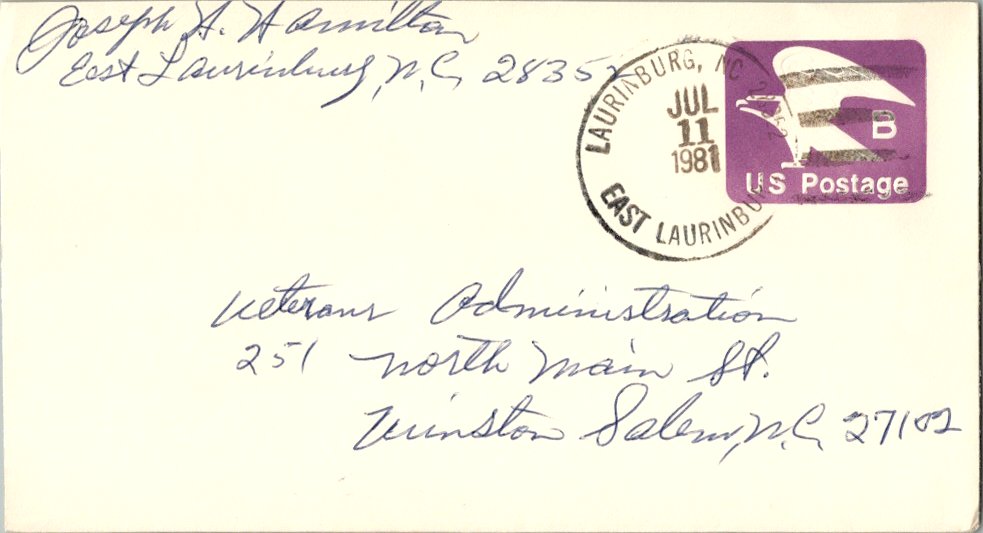 Joseph A. Hamilton
East Laurinburg, N.C. 28352
LAURINBURG, NC 28352
JUL
11
1981
EAST LAURINBUR
B
US Postage
Veterans Administration
251 North Main St.
Winston Salem, N.C. 27102